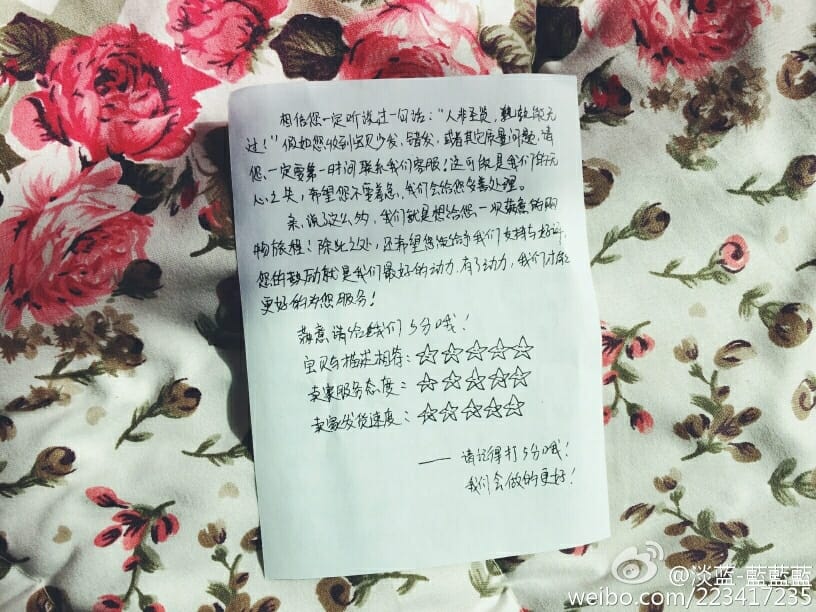 相信您一定听说过一句话:"人非圣贤,孰能无
过!"假如您收到宝贝少发、错发,或者其它质量问题,请
您一定要第一时间联系我们客服!这可能是我们的无
心之失,希望您不要着急,我们会给您妥善处理。
亲,说了这么多,我们就是想给您一次满意的购
物旅程!除此之处,还希望您能给予我们支持与好评,
您的鼓励就是我们最好的动力,有了动力,我们才能
更好的为您服务!
满意请给我们5分哦!
宝贝与描述相符:☆☆☆☆☆
卖家服务态度:☆☆☆☆☆
卖家发货速度:☆☆☆☆☆
——请记得打5分哦!
我们会做的更好!
@淡蓝-藍藍藍
weibo.com/223417235